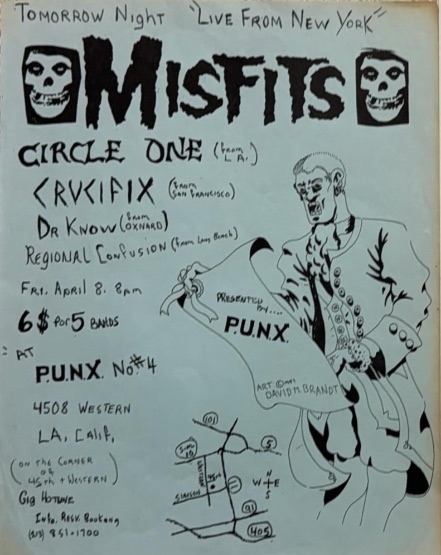 Tomorrow Night "Live From New York"
MISFITS
CIRCLE ONE (from L.A.)
CRUCIFIX (from SAN FRANCISCO)
DR KNOW (from OXNARD)
REGIONAL CONFUSION (from Long Beach)
Fri. April 8. 8pm
6$ for 5 BANDS
AT
P.U.N.X. No#4
4508 WESTERN
LA, Calif,
(ON THE CORNER
OF
45th + WESTERN)
Gig HOTLINE
Info. Resv. Booking
851-1700
PRESENTED
BY....
P.U.N.X.
ART ©
DAVID M. BRANDT
101
5
N
W E
S
11
SLAUSON
91
405